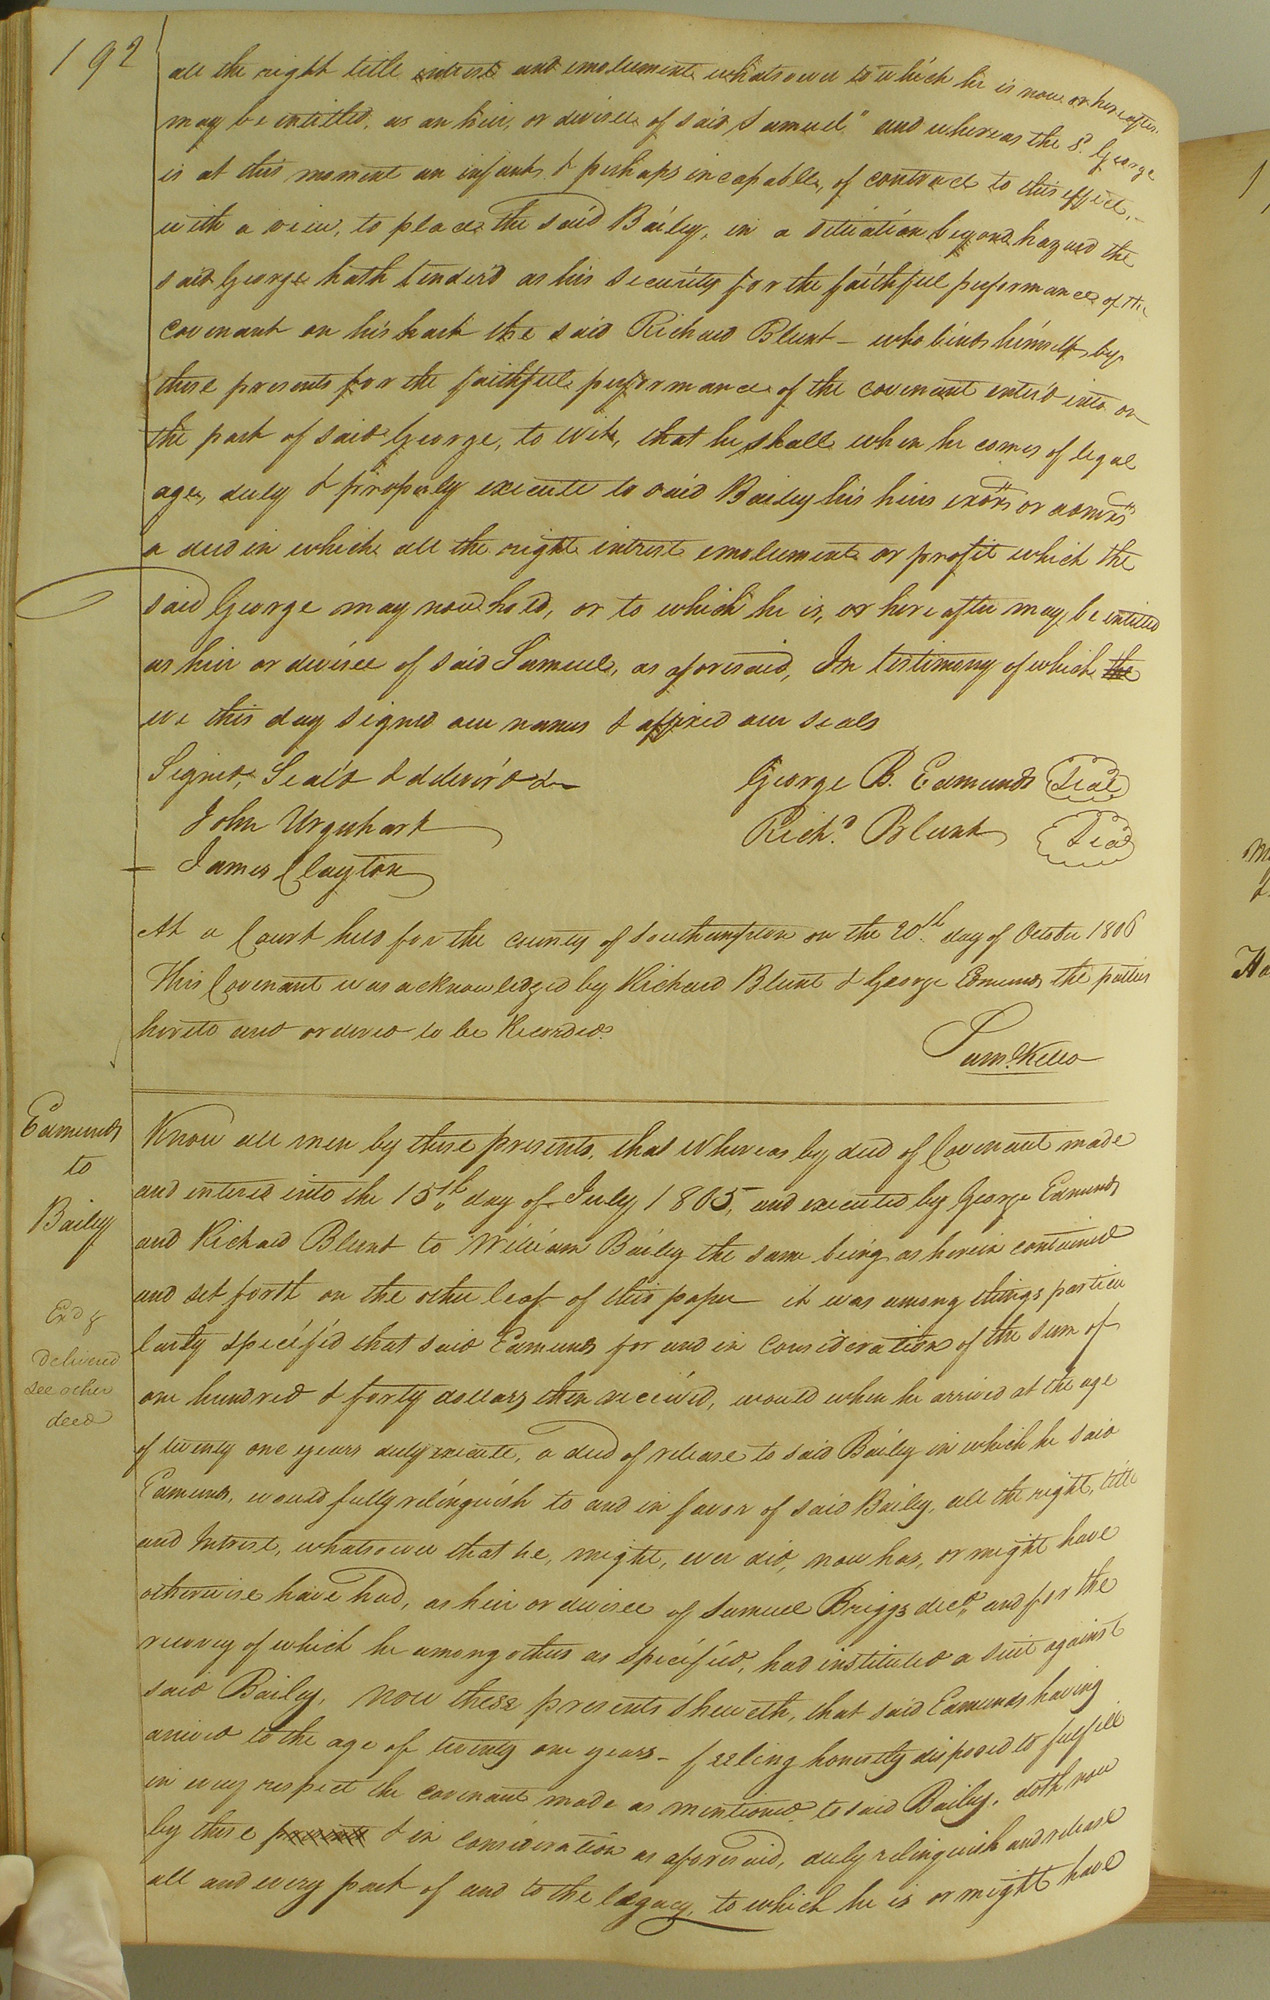 192
all the right title intrest and emolument whatsoever to which he is now or hereafter
may be intitled, as an heir, or devisee of said Samuel" and whereas the sd. George
is at this moment an infant & perhaps incapable, of contract to this effect,
with a view, to place the said Baily, in a situation beyond hazard the
said George hath tender'd as his security for the faithful performance of the
covenant on his part the said Richard Blunt - who binds himself by
these presents for the faithfull performance of the covenant enter'd into on
the part of said George, to wit, that he shall when he comes of legal
age, duly & properly execute to said Bailey his heirs exors or admrs
a deed in which all the right intrest emolument or profit which the
said George may now hold, or to which he is, or hereafter may be intitled
as heir or devisee of said Samuel, as aforesaid, In testimony of which the
we this day signed our names & affixed our seals
Signed, Seal'd & deliver'd
George B. Edmunds Seal
John Urquhart
Richd. Blunt Seal
James Clayton
At a Court held for the county of Southampton on the 20th. day of October 1806
This Covenant was acknowledged by Richard Blunt & George Edmunds the parties
hereto and ordered to be Recorded.
Saml. Kello
Edmunds
to
Bailey
Exd &
Delivered
see other
deed
Know all men by these presents, that whereas by deed of Covenant made
and intered into the 15th day of July 1805, and executed by George Edmunds
and Richard Blunt to William Baily the same being as herein contained
and set forth on the other leaf of this paper it was among things particu
larly specified that said Edmunds for and in consideration of the sum of
one hundred & forty dollars then received, would when he arrived at the age
of twenty one years duly execute, a deed of release to said Baily in which he said
Edmunds, would fully relinquish to and in favor of said Baily, all the right, title
and Intrest, whatsoever that he, might, ever did, now has, or might have
otherwise have had, as heir or devisee of Samuel Briggs decd., and for the
recovery of which he among others as specified, had instituted a suit against
said Bailey, Now these presents sheweth, that said Edmunds having
arrived to the age of twenty one years - feeling honestly disposed to fulfill
in every respect the covenant made as mentioned to said Baily, doth now
by these presents & in consideration as aforesaid, duly relinquish and release
all and every part of and to the legacy, to which he is or might have